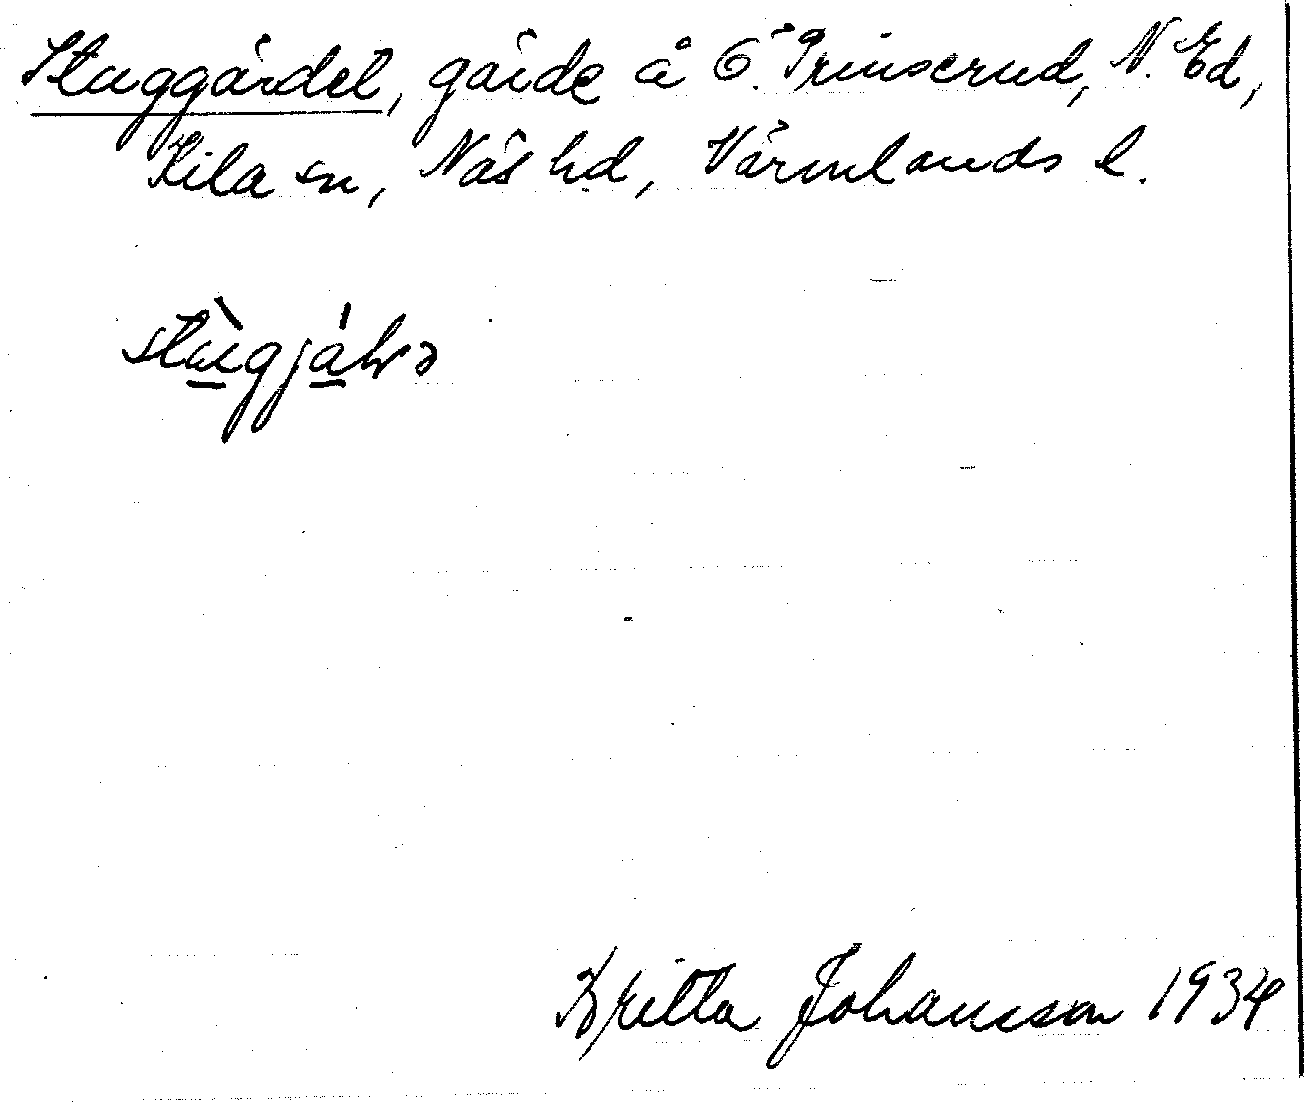 Stuggärdet, gärde å Ö. Prinserud, N. Ed,
Kila sn, Näs hd, Värmlands l.
Britta Johansson 1934